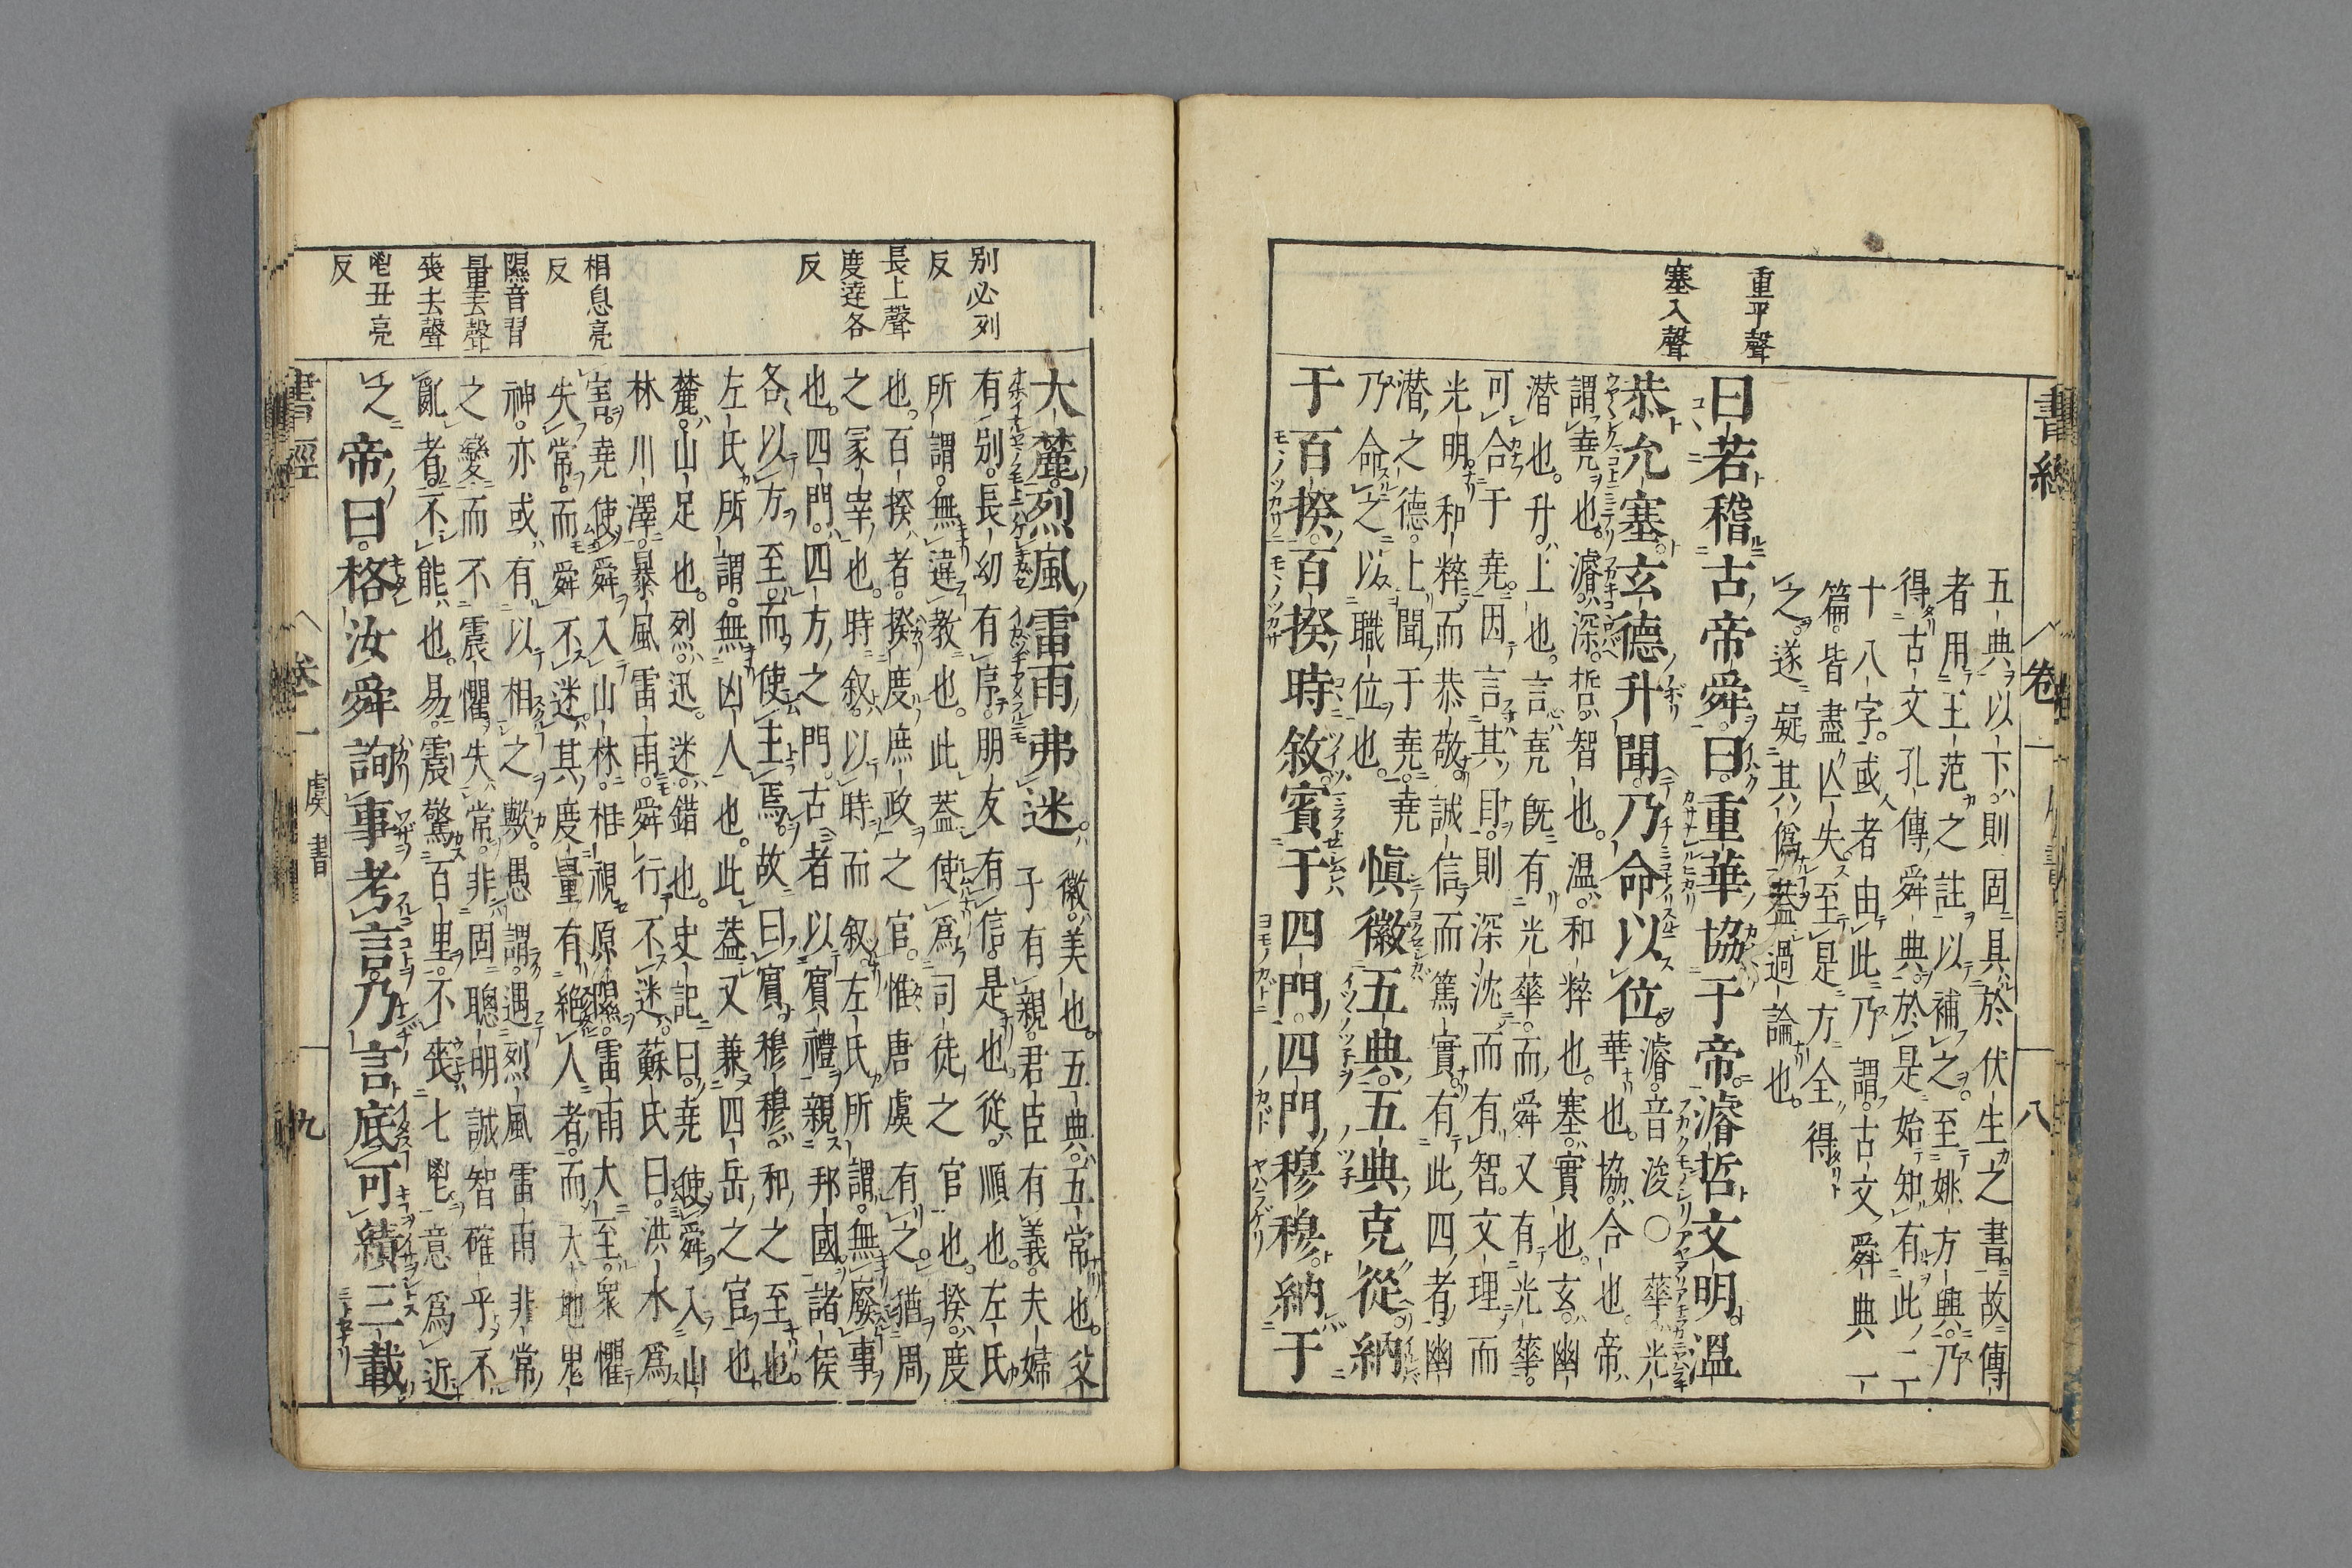 重平聲
塞入聲
書經 卷一 八
五典以下則固具於伏生之書故傳
者用王范之註以補之至姚方興乃
得古文孔傳舜典於是始知有此二
十八字或者由此乃謂古文舜典一
篇皆盡亡失至是方全得
之遂疑其僞蓋過論也
曰若稽古帝舜曰重華協于帝濬哲文明溫
恭允塞玄德升聞乃命以位
濬音浚○華光
華也協合也帝
謂堯也濬深哲智也溫和粹也塞實也玄幽
潛也升上也言堯既有光華而舜又有光華
可合于堯因言其目則深沈而有智文理而
光明和粹而恭敬誠信而篤實有此四者幽
潛之德上聞于堯堯
乃命之以職位也
慎徽五典五典克從納
于百揆百揆時敘賓于四門四門穆穆納于
別必列
反
長上聲
度達各
反
相息亮
反
隰音習
量去聲
喪去聲
鬯丑亮
反
大麓烈風雷雨弗迷
徽美也五典五常也父
子有親君臣有義夫婦
有別長幼有序朋友有信是也從順也左氏
所謂無違教也此蓋使爲司徒之官也揆度
也百揆者揆度庶政之官惟唐虞有之猶周
之冢宰也時敘以時而敘左氏所謂無廢事
也四門四方之門古者以賓禮親邦國諸侯
各以方至而使主焉故曰賓穆穆和之至也
左氏所謂無凶人也此蓋又兼四岳之官也
麓山足也烈迅迷錯也史記曰堯使舜入山
林川澤暴風雷雨舜行不迷蘇氏曰洪水爲
害堯使舜入山林相視原隰雷雨大至衆懼
失常而舜不迷其度量有絶人者而天地鬼
神亦或有以相之歟愚謂遇烈風雷雨非常
之變而不震懼失常非固聰明誠智確乎不
亂者不能也易震驚百里不喪匕鬯意爲近
之
帝曰格汝舜詢事考言乃言底可績三載
書經 卷一 虞書 九